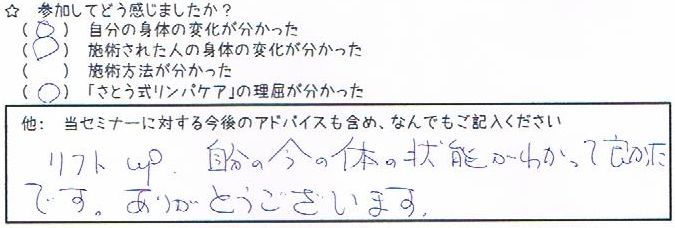 ☆ 参加してどう感じましたか？
(○) 自分の身体の変化が分かった
(○) 施術された人の身体の変化が分かった
( ) 施術方法が分かった
(○) 「さとう式リンパケア」の理屈が分かった
他: 当セミナーに対する今後のアドバイスも含め、なんでもご記入ください
リフトup. 自分の今の体の状態がわかって良かった
です。ありがとうございます.